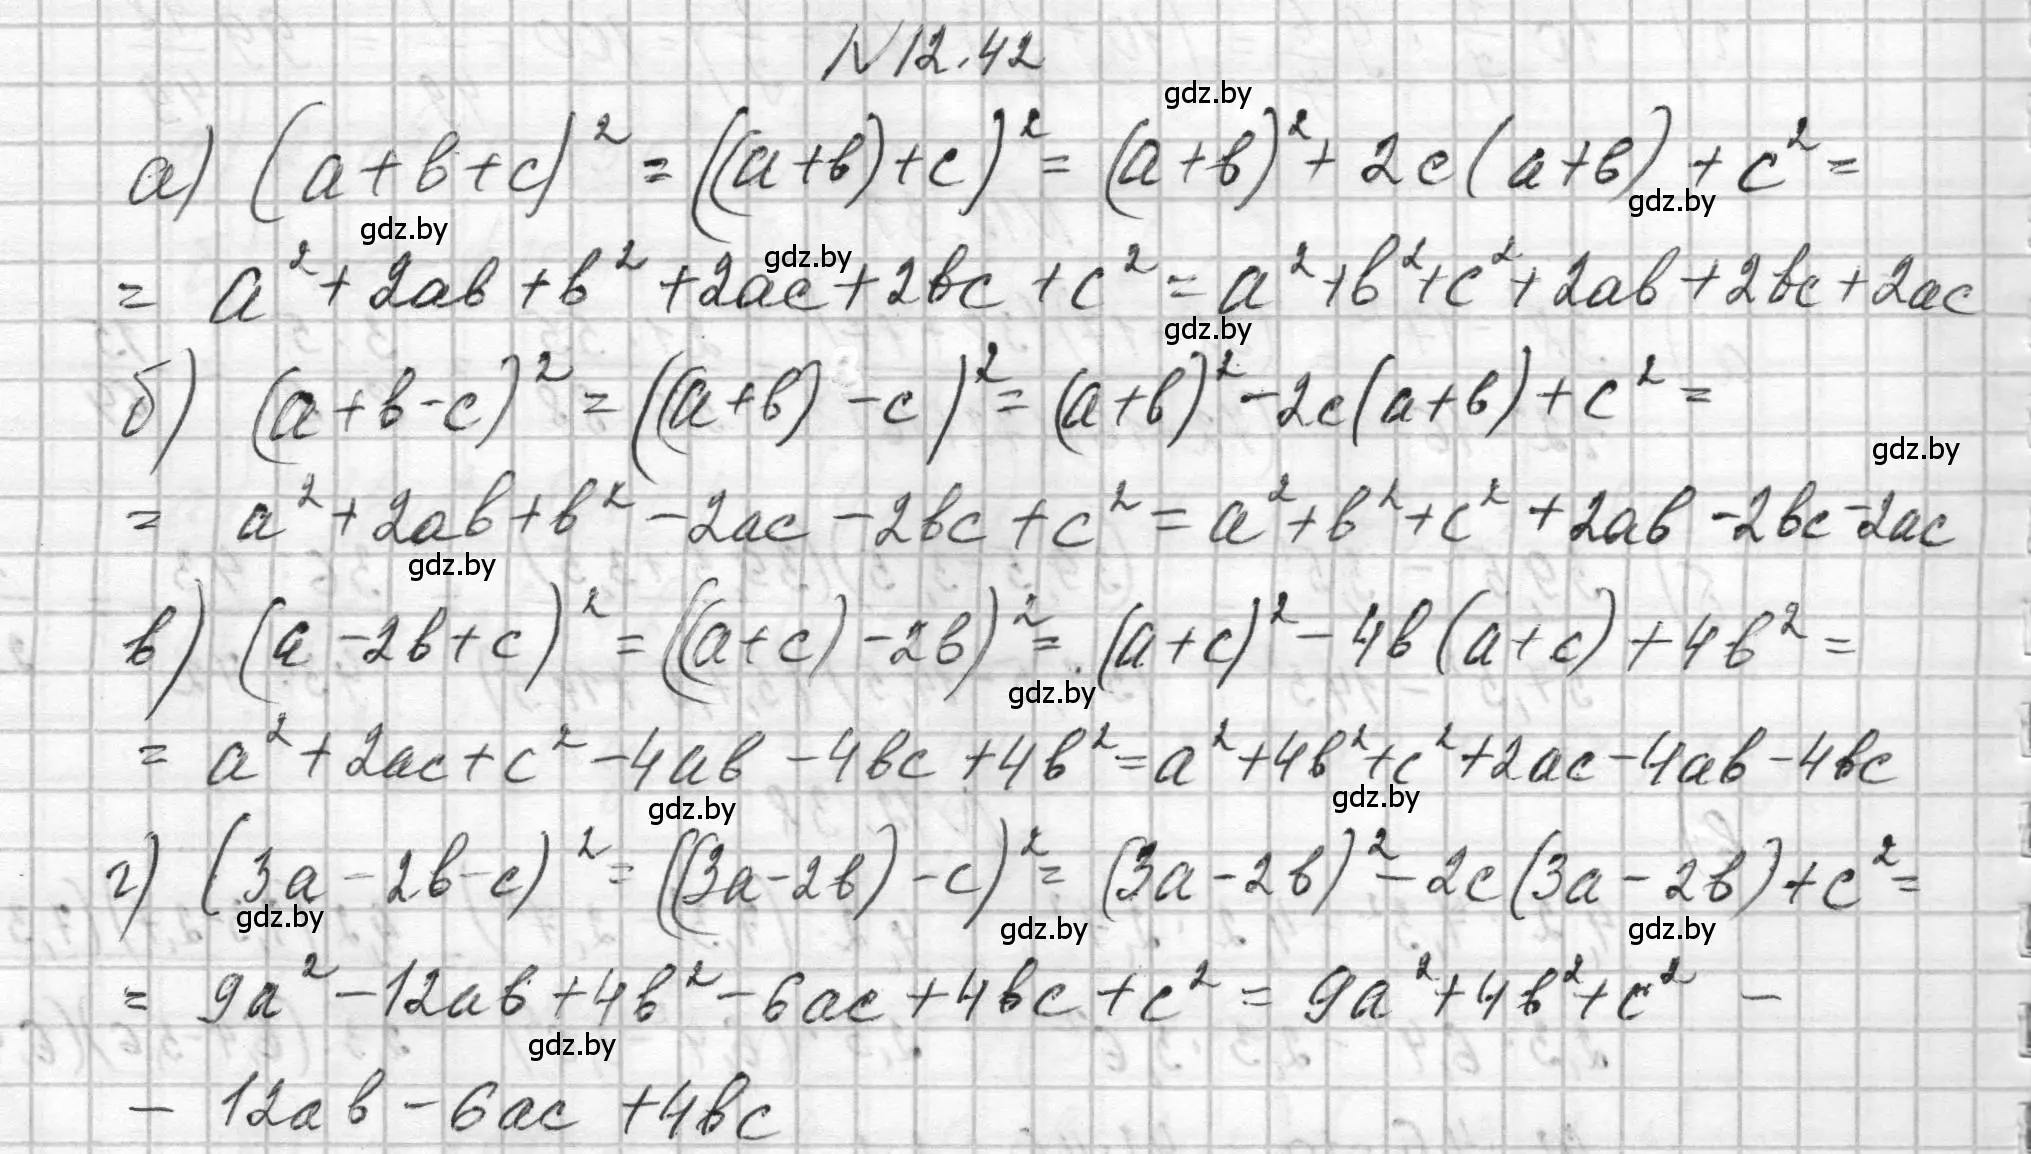 N 12.42
gdz.by
а) (a+b+c)² = ((a+b)+c)² = (a+b)² + 2c(a+b) + c² =
gdz.by
gdz.by
gdz.by
= a² + 2ab + b² + 2ac + 2bc + c² = a² + b² + c² + 2ab + 2bc + 2ac
gdz.by
б) (a+b-c)² = ((a+b)-c)² = (a+b)² - 2c(a+b) + c² =
gdz.by
= a² + 2ab + b² - 2ac - 2bc + c² = a² + b² + c² + 2ab - 2bc - 2ac
gdz.by
в) (a-2b+c)² = ((a+c)-2b)² = (a+c)² - 4b(a+c) + 4b² =
gdz.by
= a² + 2ac + c² - 4ab - 4bc + 4b² = a² + 4b² + c² + 2ac - 4ab - 4bc
gdz.by
gdz.by
г) (3a-2b-c)² = ((3a-2b)-c)² = (3a-2b)² - 2c(3a-2b) + c² =
gdz.by
gdz.by
gdz.by
= 9a² - 12ab + 4b² - 6ac + 4bc + c² = 9a² + 4b² + c² -
gdz.by
- 12ab - 6ac + 4bc